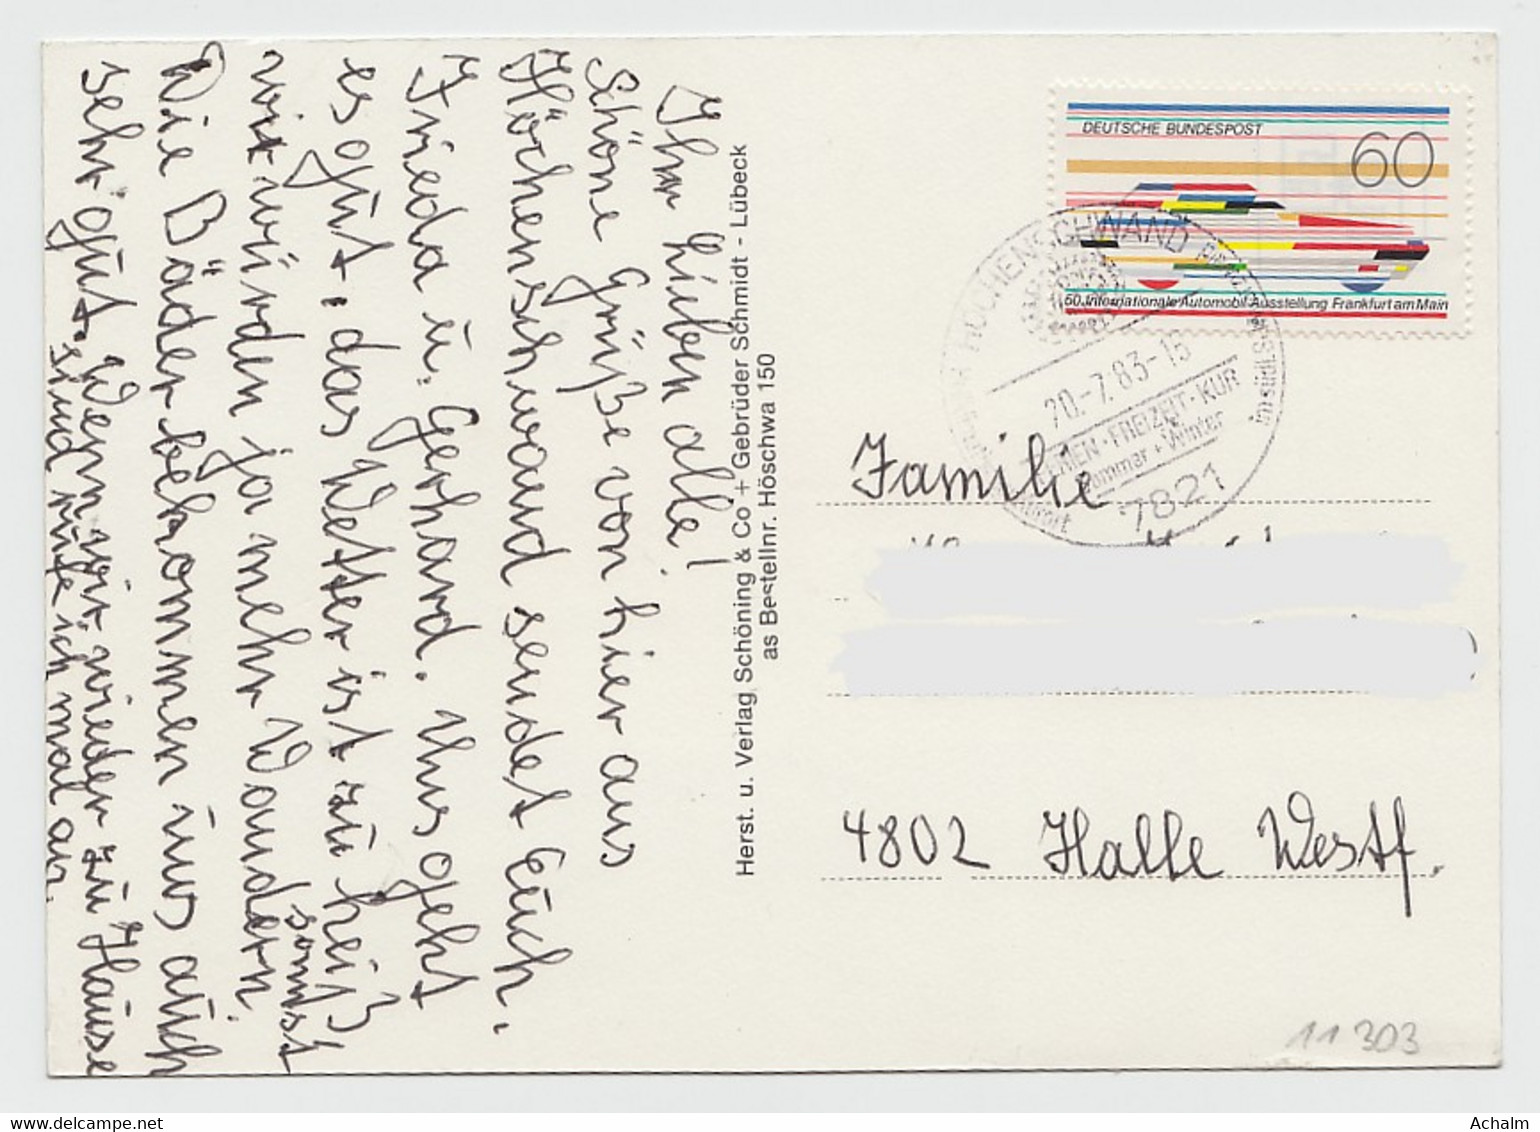 Ihr lieben alle!
Schöne Grüße von hier aus
Höchenschwand sendet Euch,
Frieda u. Gerhard. Uns geht
es gut, das Wetter ist zu heiß
sonst
wir würden ja mehr Wandern
Die Bäder bekommen uns auch
sehr gut. Wenn wir wieder zu Hause
sind rufe ich mal an.
Herst. u. Verlag Schöning & Co + Gebrüder Schmidt - Lübeck
as Bestellnr. Höschwa 150
DEUTSCHE BUNDESPOST
60
50. Internationale Automobil-Ausstellung Frankfurt am Main
HÖCHENSCHWAND
im südl. S
20.-7.83-15
FERIEN · FREIZEIT · KUR
Sommer + Winter
7821
Familie
4802 Halle Westf.
11 303
Achalm